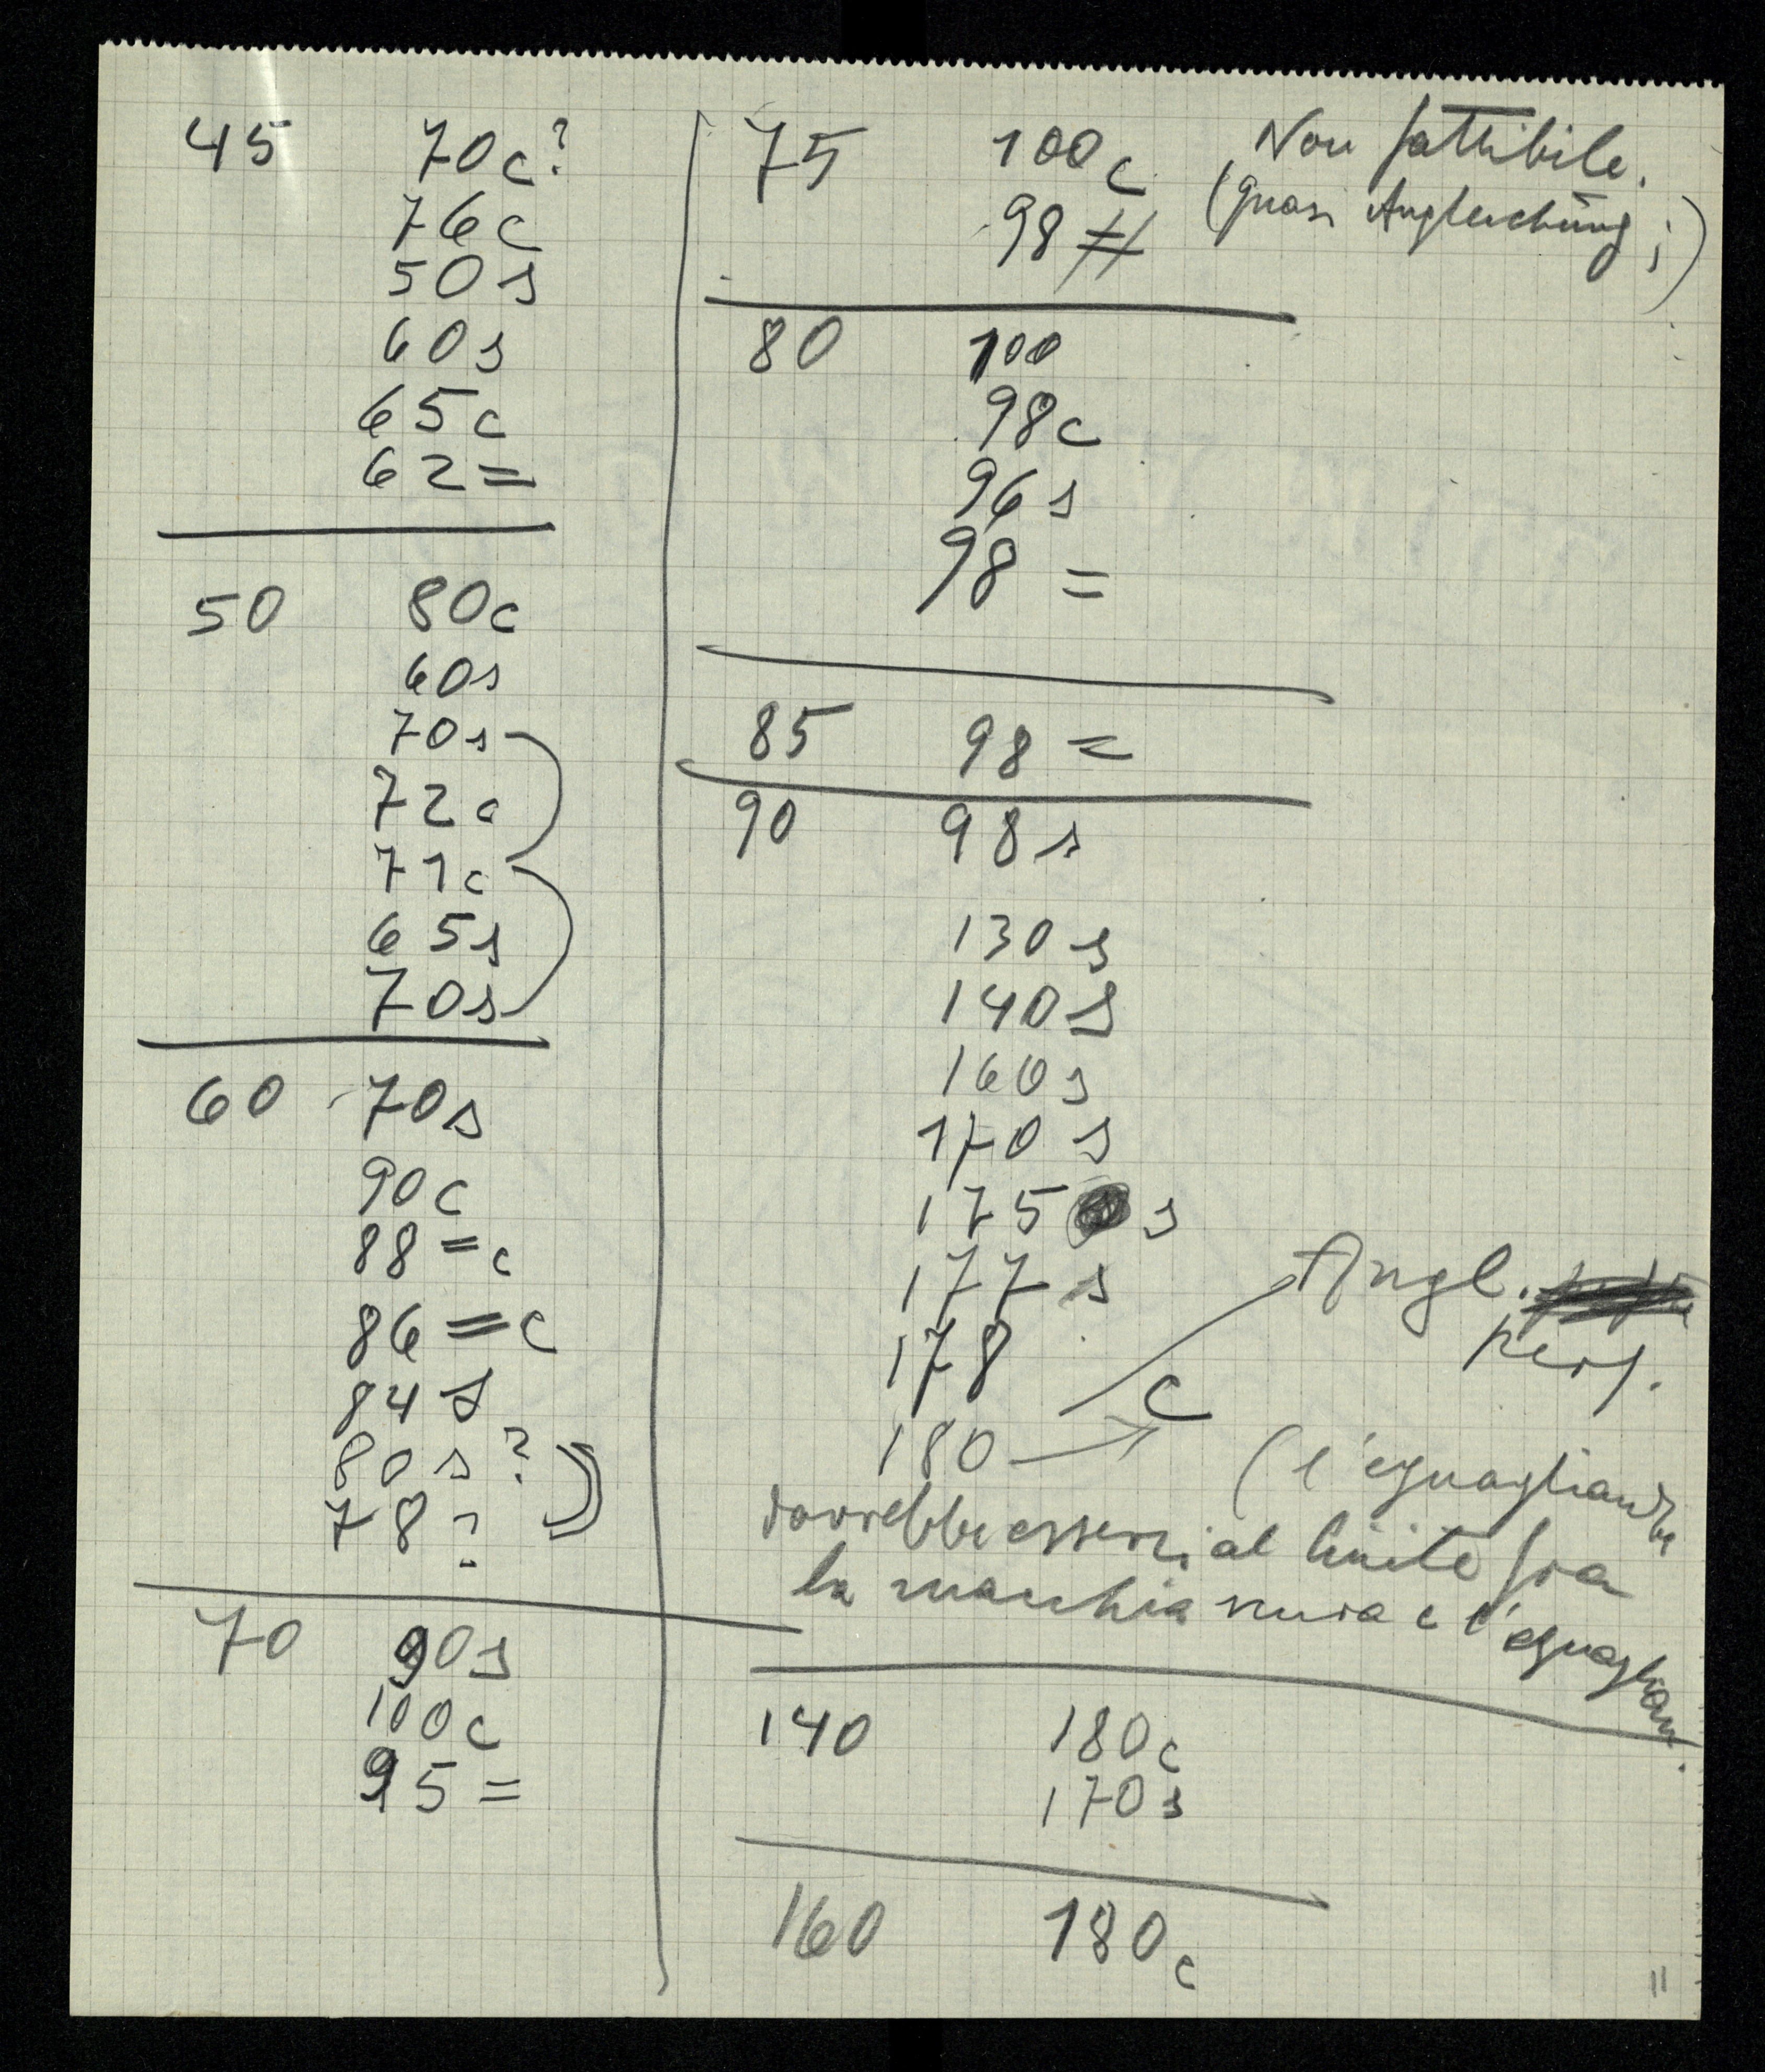 45 70c?
76c
50s
60s
65c
62=
50 80c
60s
70s
72c
71c
65s
70s
60 70s
90c
88=c
86=c
84s
80s?
78?
70 90s
100c
95=
75 100c Non fattibile.
98 (quasi Angleichung;)
80 100
98c
96s
98=
85 98=
90 98s
130s
140s
160s
170s
175 s
177s
178
Angl.
perf.
180 c
(l'eguaglianza
dovrebbe esserci al limite fra
la macchia scura e l'eguaglian.
140 180c
170s
160 180c
11